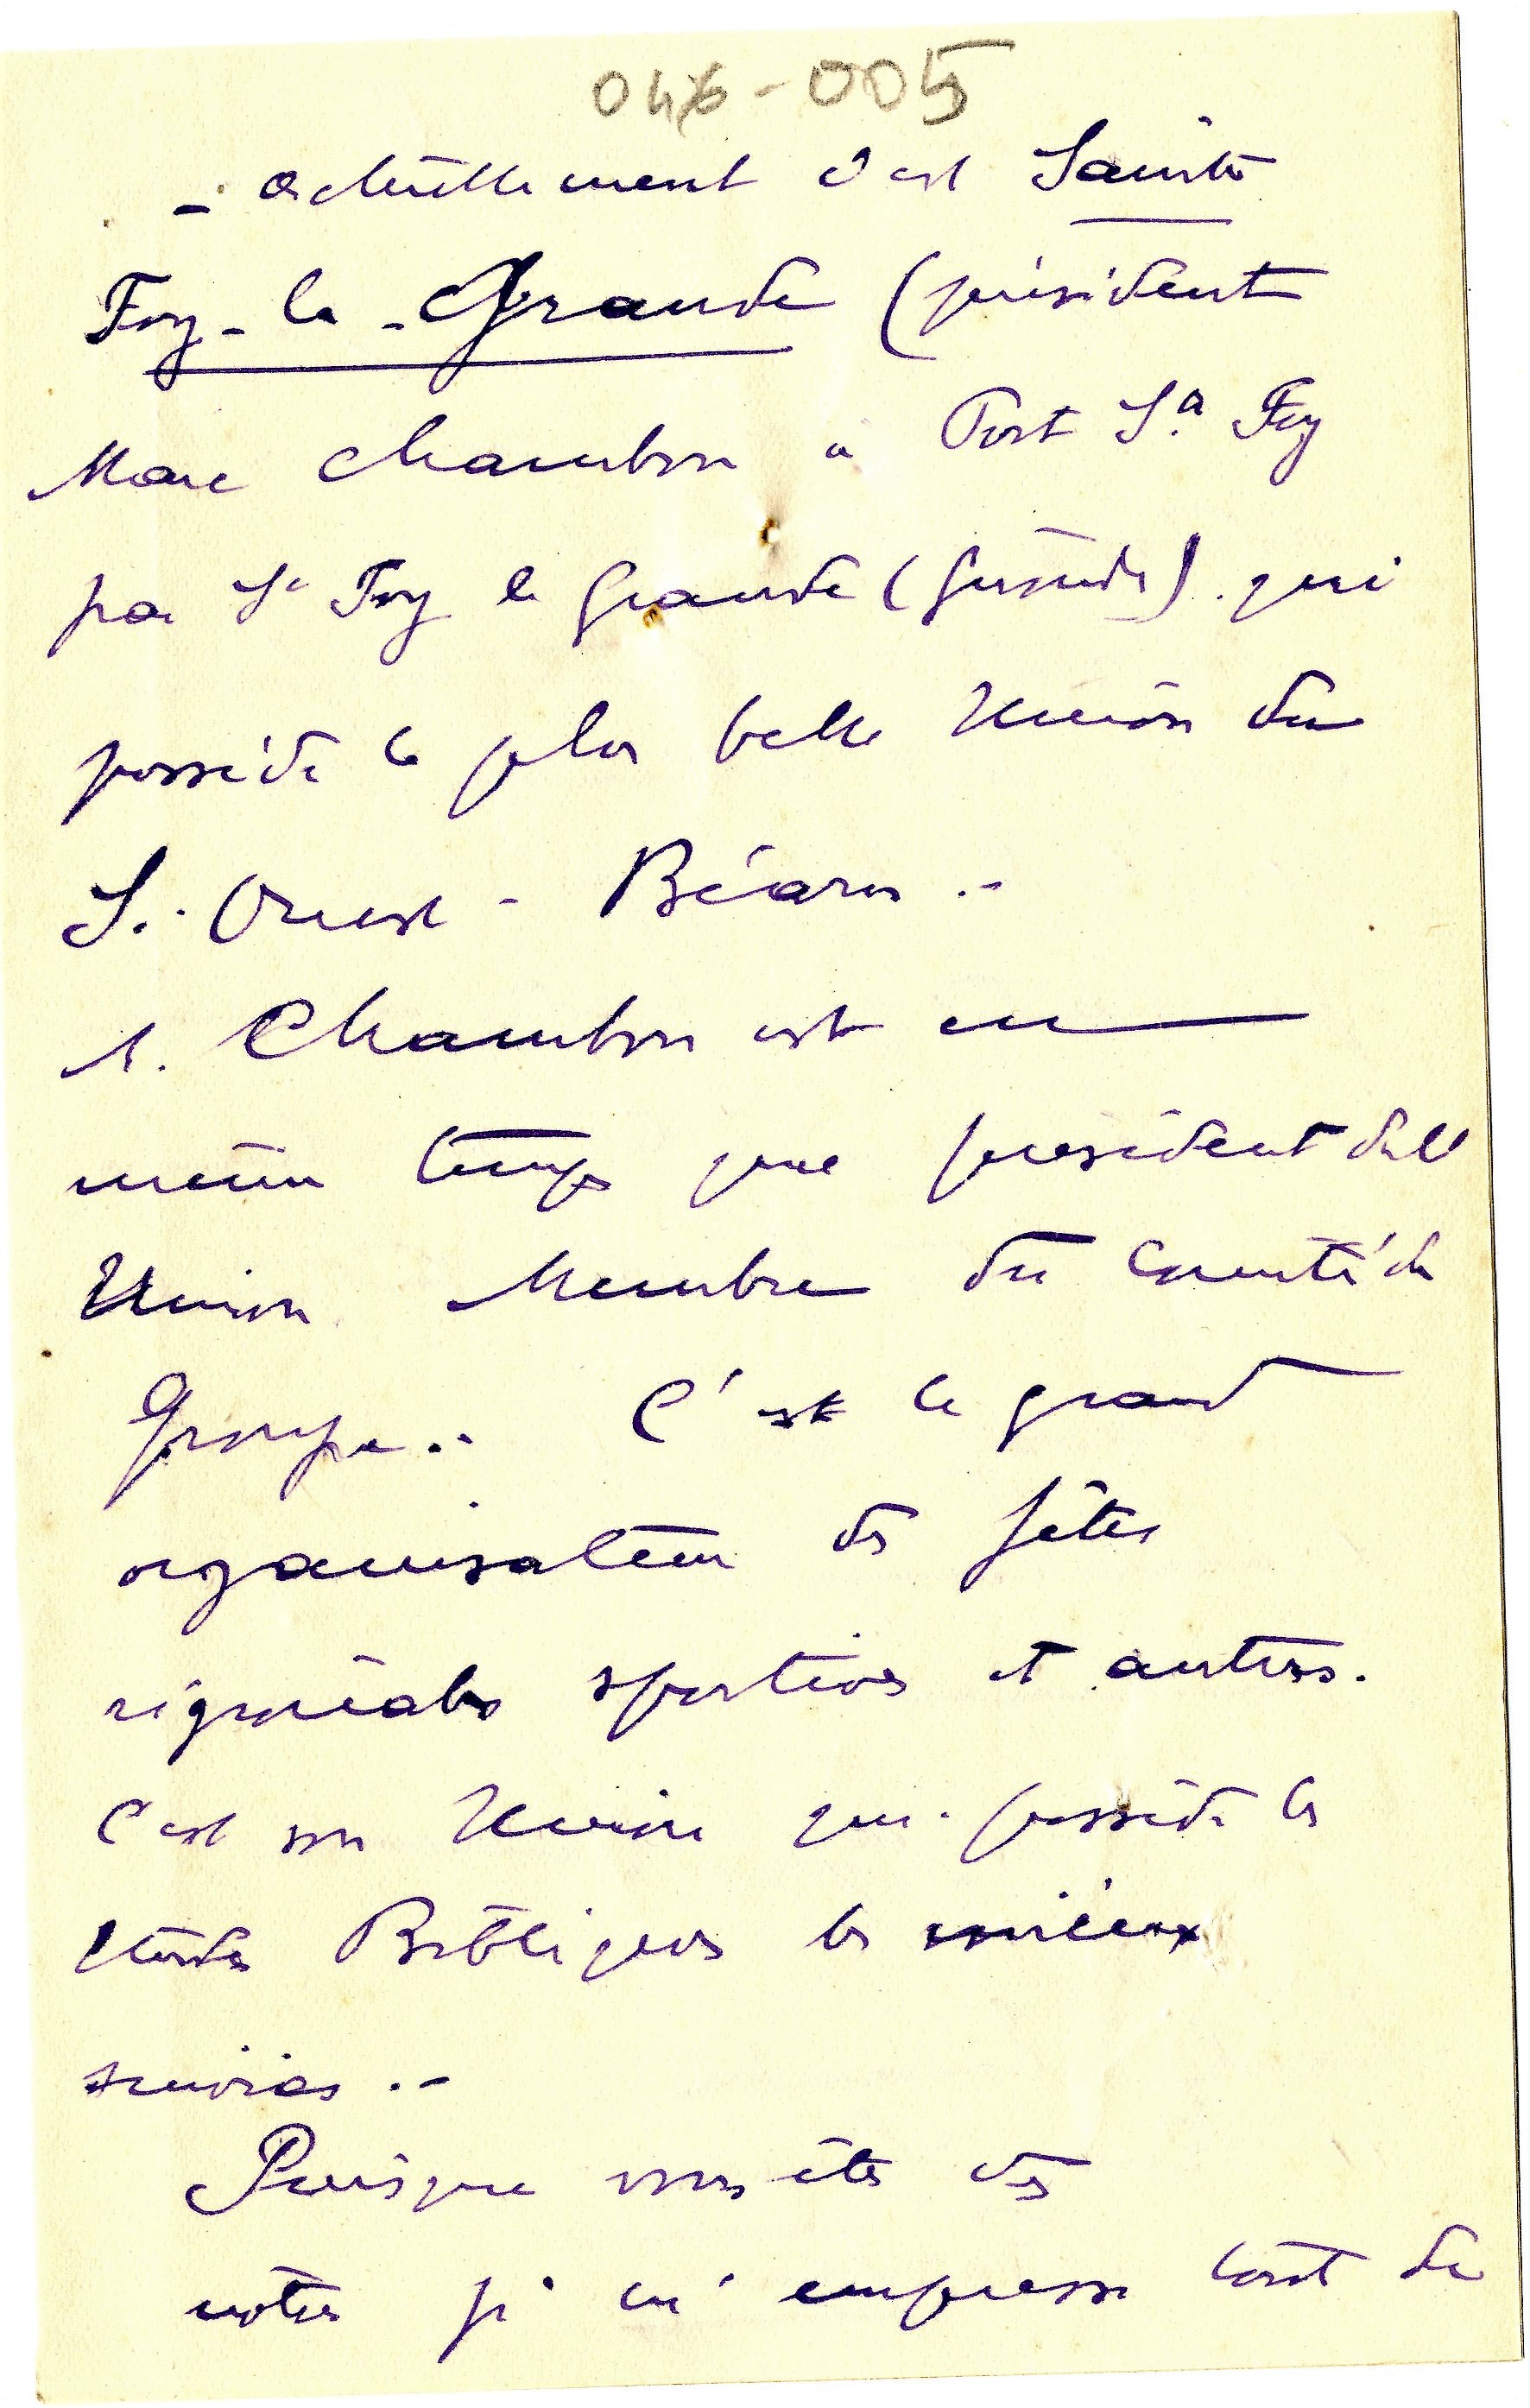 046-005
- actuellement c'est Sainte
Foy-la-Grande (président
Marc Chambon à Port Sa Foy
par Se Foy la Grande (Gironde) qui
possède la plus belle Union du
S. Ouest - Béarn.-
M. Chambon est en
même temps que président de l'
Union Membre du Comité du
Groupe.- C'est le grand
organisateur des fêtes
régionales sportives et autres.
C'est son Union qui possède les
études Bibliques les mieux
suivies.-
Puisque vous êtes des
nôtres je m'empresse tout de